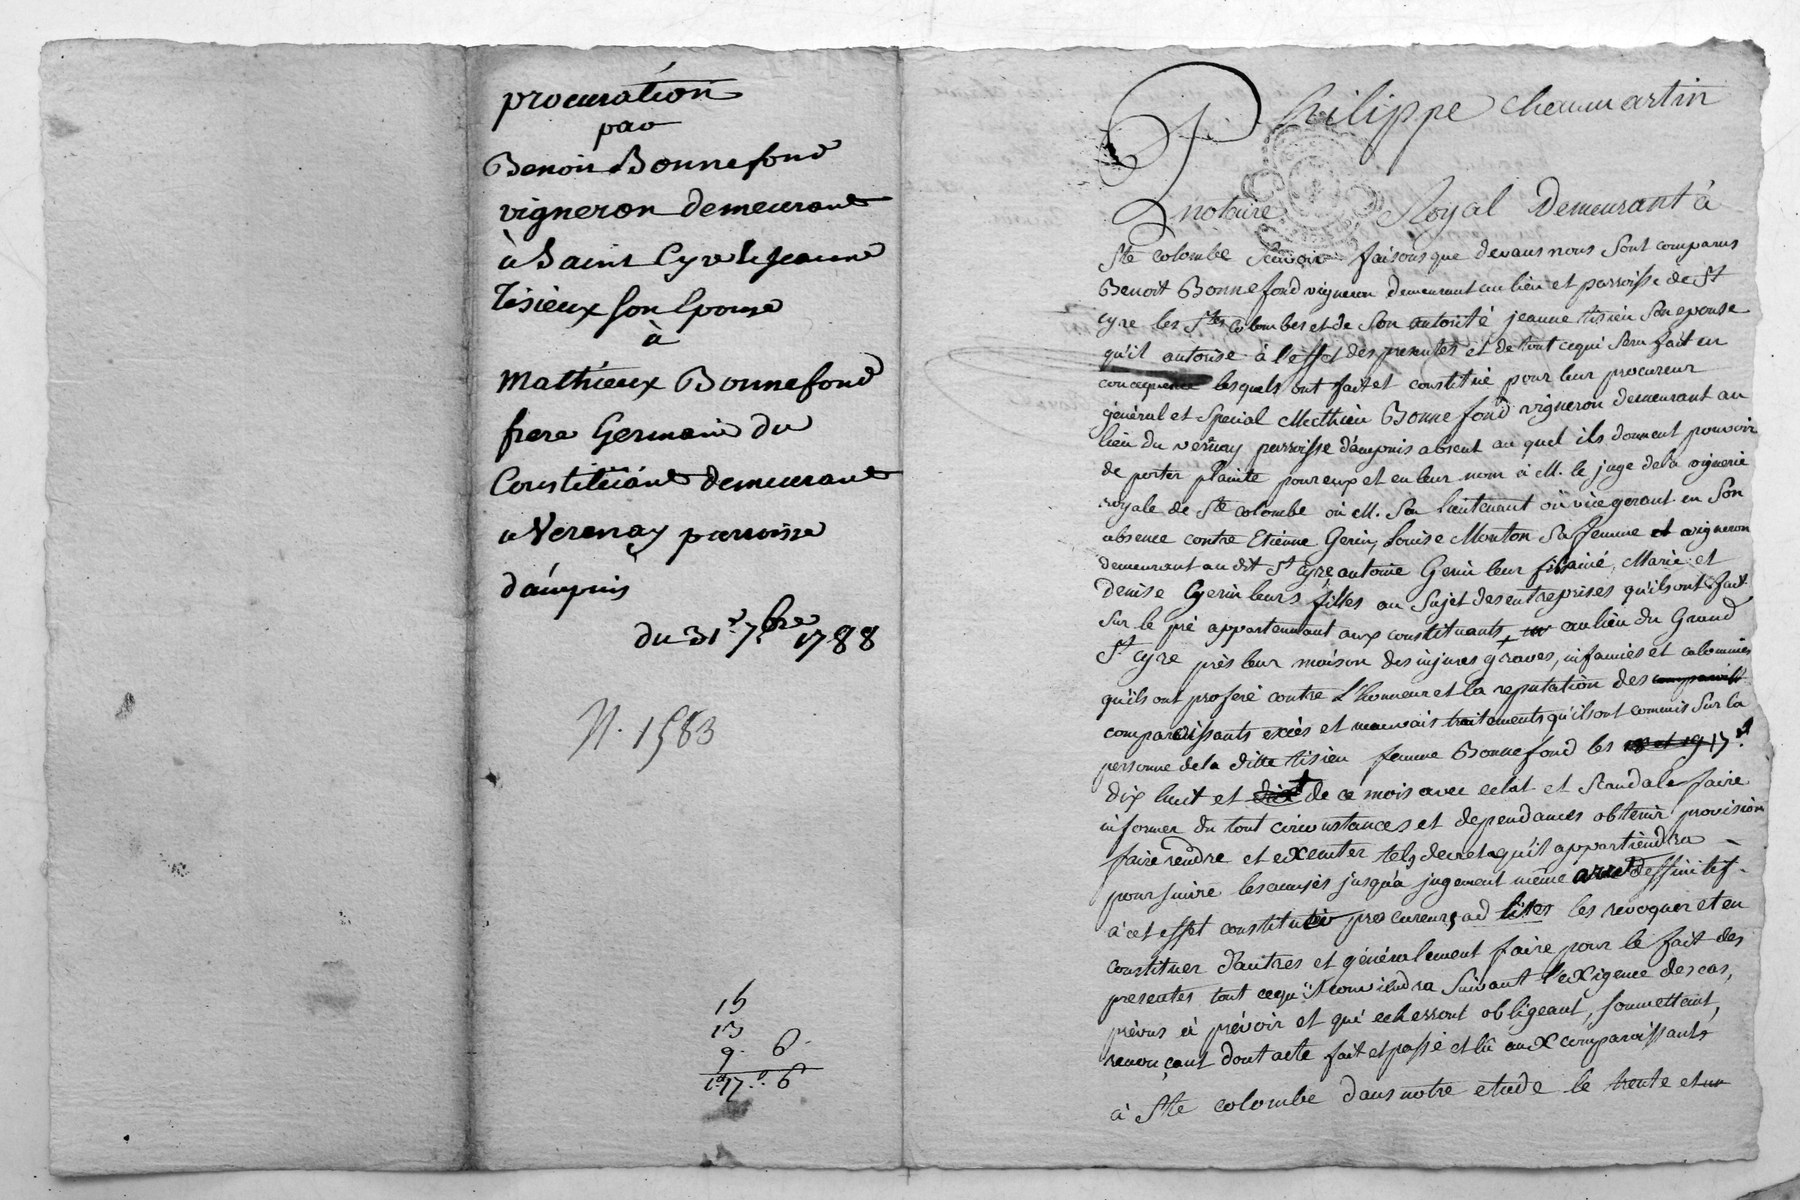 procuration
par
Benoit Bonnefond
vigneron demeurant
à Saint Cyre & Jeanne
Tisieux son Epouse
à
Mathieux Bonnefond
frere Germain du
Constituant demeurant
a Verenay parroisse
d'ampuis
du 31.e 7.bre 1788
N. 1583
15
13
9. 6.
1# 17.s. 6d
Philippe Chaumartin
notaire Royal Demeurant à
Ste Colombe Scavoir faisons que devans nous sont comparus
Benoit Bonnefond vigneron demeurant au lieu et parroisse de St
Cyre les Stes Colombes et de son autorité jeanne tisieu son epouse
qu'il autorise à l'effet des presentes et de tout ce qui sera fait en
concequence lesquels ont fait et constitué pour leur procureur
général et special Mathieu Bonnefond vigneron demeurant au
lieu du vernay parroisse d'ampuis absent au quel ils donnent pouvoir
de porter plainte pour eux et en leur nom à M. le juge de la viguerie
royale de Ste Colombe ou M. son lieutenant ou vice gerant en son
absence contre Etienne Gerin, Louise Mouton sa femme et vigneron
demeurant au dit St Cyre antoine Gerin leur fils ainé, Marie et
denise Gerin leurs filles au sujet des entreprises qu'ils ont fait
sur le pré appartennant aux constituants, au lieu du Grand
St Cyre près leur maison des injures graves, infamies et calomnies
qu'ils ont proferé contre l'honneur et la reputation des comparoiss
comparoissants excès et mauvais traitements qu'ils ont commis sur la
personne de la ditte tisieu femme Bonnefond les 18 et 19 17.e
dix huit et de ce mois avec eclat et scandale faire
informer du tout circonstances et dependances obtenir provision
faire rendre et executer tels decrets qu'il appartiendra
poursuivre les accusés jusqu'à jugement même arret deffinitif
à cet effet constituer procureurs ad lites les revoquer et en
constituer d'autres et généralement faire pour le fait des
presentes tout ce qu'il conviendra suivant l'exigence des cas,
prévus à prévoir et qui echerront obligeant, soumettant,
renonçant dont acte fait et passé et lû aux comparoissants
à Ste colombe dans notre etude le trente et un